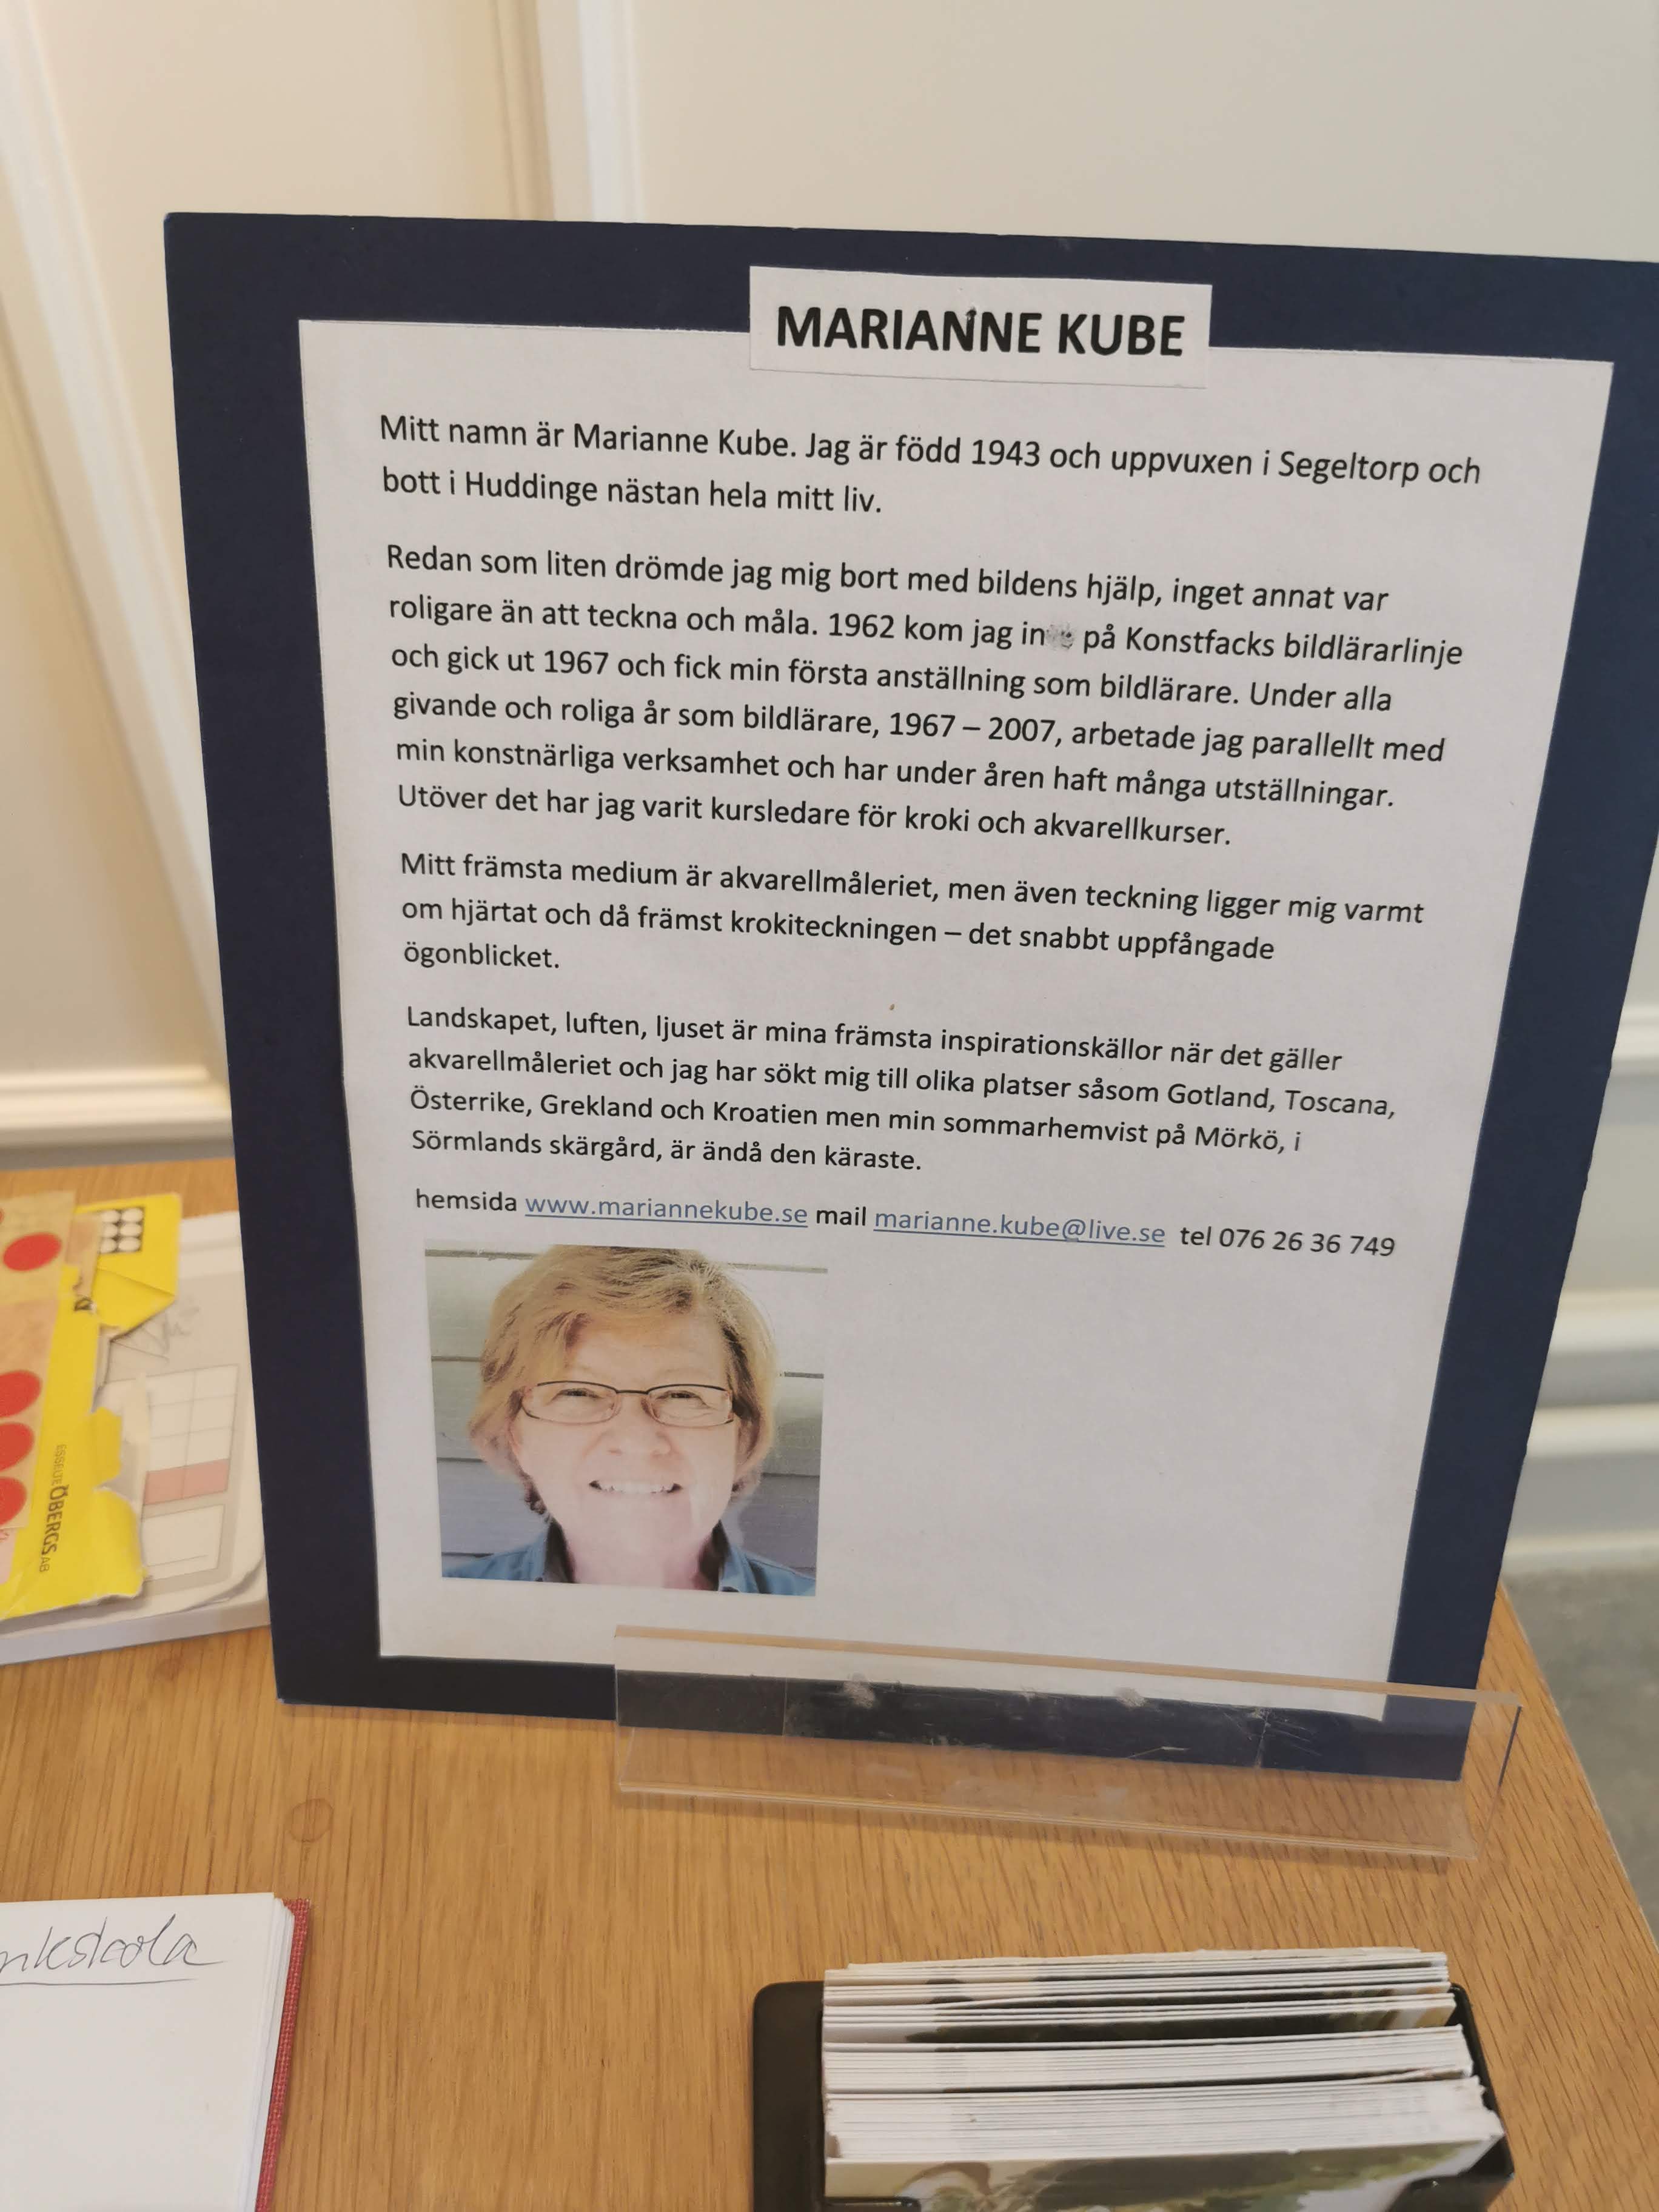 MARIANNE KUBE
Mitt namn är Marianne Kube. Jag är född 1943 och uppvuxen i Segeltorp och
bott i Huddinge nästan hela mitt liv.
Redan som liten drömde jag mig bort med bildens hjälp, inget annat var
roligare än att teckna och måla. 1962 kom jag in på Konstfacks bildlärarlinje
och gick ut 1967 och fick min första anställning som bildlärare. Under alla
givande och roliga år som bildlärare, 1967 – 2007, arbetade jag parallellt med
min konstnärliga verksamhet och har under åren haft många utställningar.
Utöver det har jag varit kursledare för kroki och akvarellkurser.
Mitt främsta medium är akvarellmåleriet, men även teckning ligger mig varmt
om hjärtat och då främst krokiteckningen – det snabbt uppfångade
ögonblicket.
Landskapet, luften, ljuset är mina främsta inspirationskällor när det gäller
akvarellmåleriet och jag har sökt mig till olika platser såsom Gotland, Toscana,
Österrike, Grekland och Kroatien men min sommarhemvist på Mörkö, i
Sörmlands skärgård, är ändå den käraste.
hemsida www.mariannekube.se mail marianne.kube@live.se tel 076 26 36 749
ÖBERGS AB